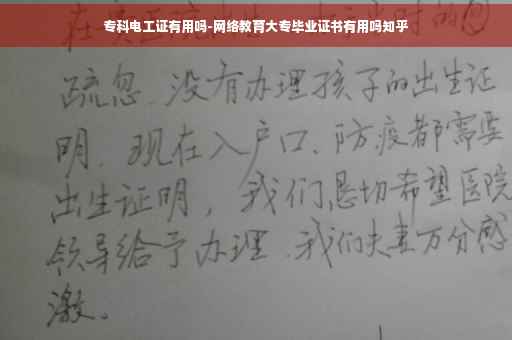 专科电工证有用吗-网络教育大专毕业证书有用吗知乎
疏忽、没有办理孩子的出生证
明、现在入户口、防疫都需要
出生证明，我们恳切希望医院
领导给予办理、我们夫妻万分感
激。